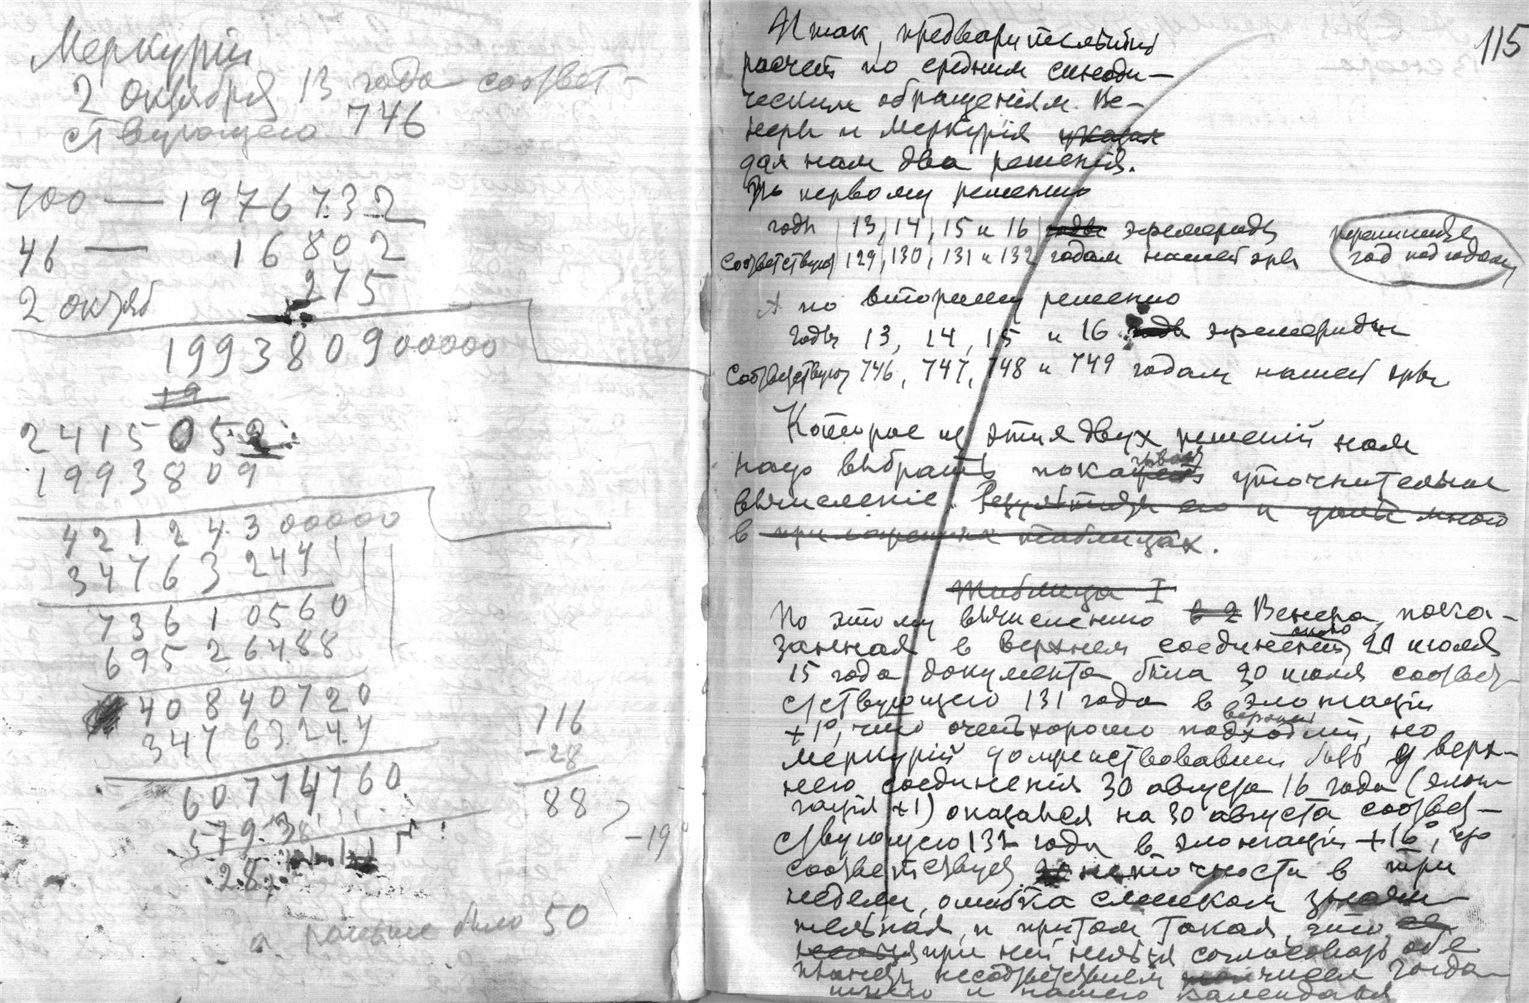 Меркурій
2 октября 13 года соответ-
ствующего 746
700 — 1976732
46 — 16802
2 октяб 275
199380900000
+9
2415052
1993809
42124300000
34763244
73610560
69526488
40840720
34763244
60774760
57938
28
116
-28
88
-19
а раньше было 50
115
Итак, предварительный
расчет по средним синоди-
ческим обращеніям Ве-
неры и Меркурія указал
дал нам два решенія.
По первому решению
годы 13, 14, 15 и 16 годы эфемериды
соответствуют 129, 130, 131 и 132 годам нашей эры
перепишите
год под годом
А по второму решению
годы 13, 14, 15 и 16 годы эфемериды
Соответствуют 746, 747, 748 и 749 годам нашей эры
Которое из этих двух решеній нам
надо выбрать показывает уточнительное
вычисленіе. Результаты его и даны мною
в приложенных таблицах.
Таблица I
По этому вычислению в 2 Венера, пока-
занная в верхнем соединеніи около 20 июля
15 года документа была 20 июля соответ-
ствующего 131 года в элонгаціи
+1°, что очень хорошо подходит, но
Меркурій долженствовавший быть у верх-
него соединенія 30 августа 16 года (элон-
гація +1) оказался на 30 августа соответ-
ствующего 132 года в элонгаціи +16°, что
соответствует неточности в три
недели, ошибка слишком значи-
тельная, и притом такая, что
при ней нельзя согласовать обе
планеты несоответствием чисел тогда-
шнего и нашего календаря